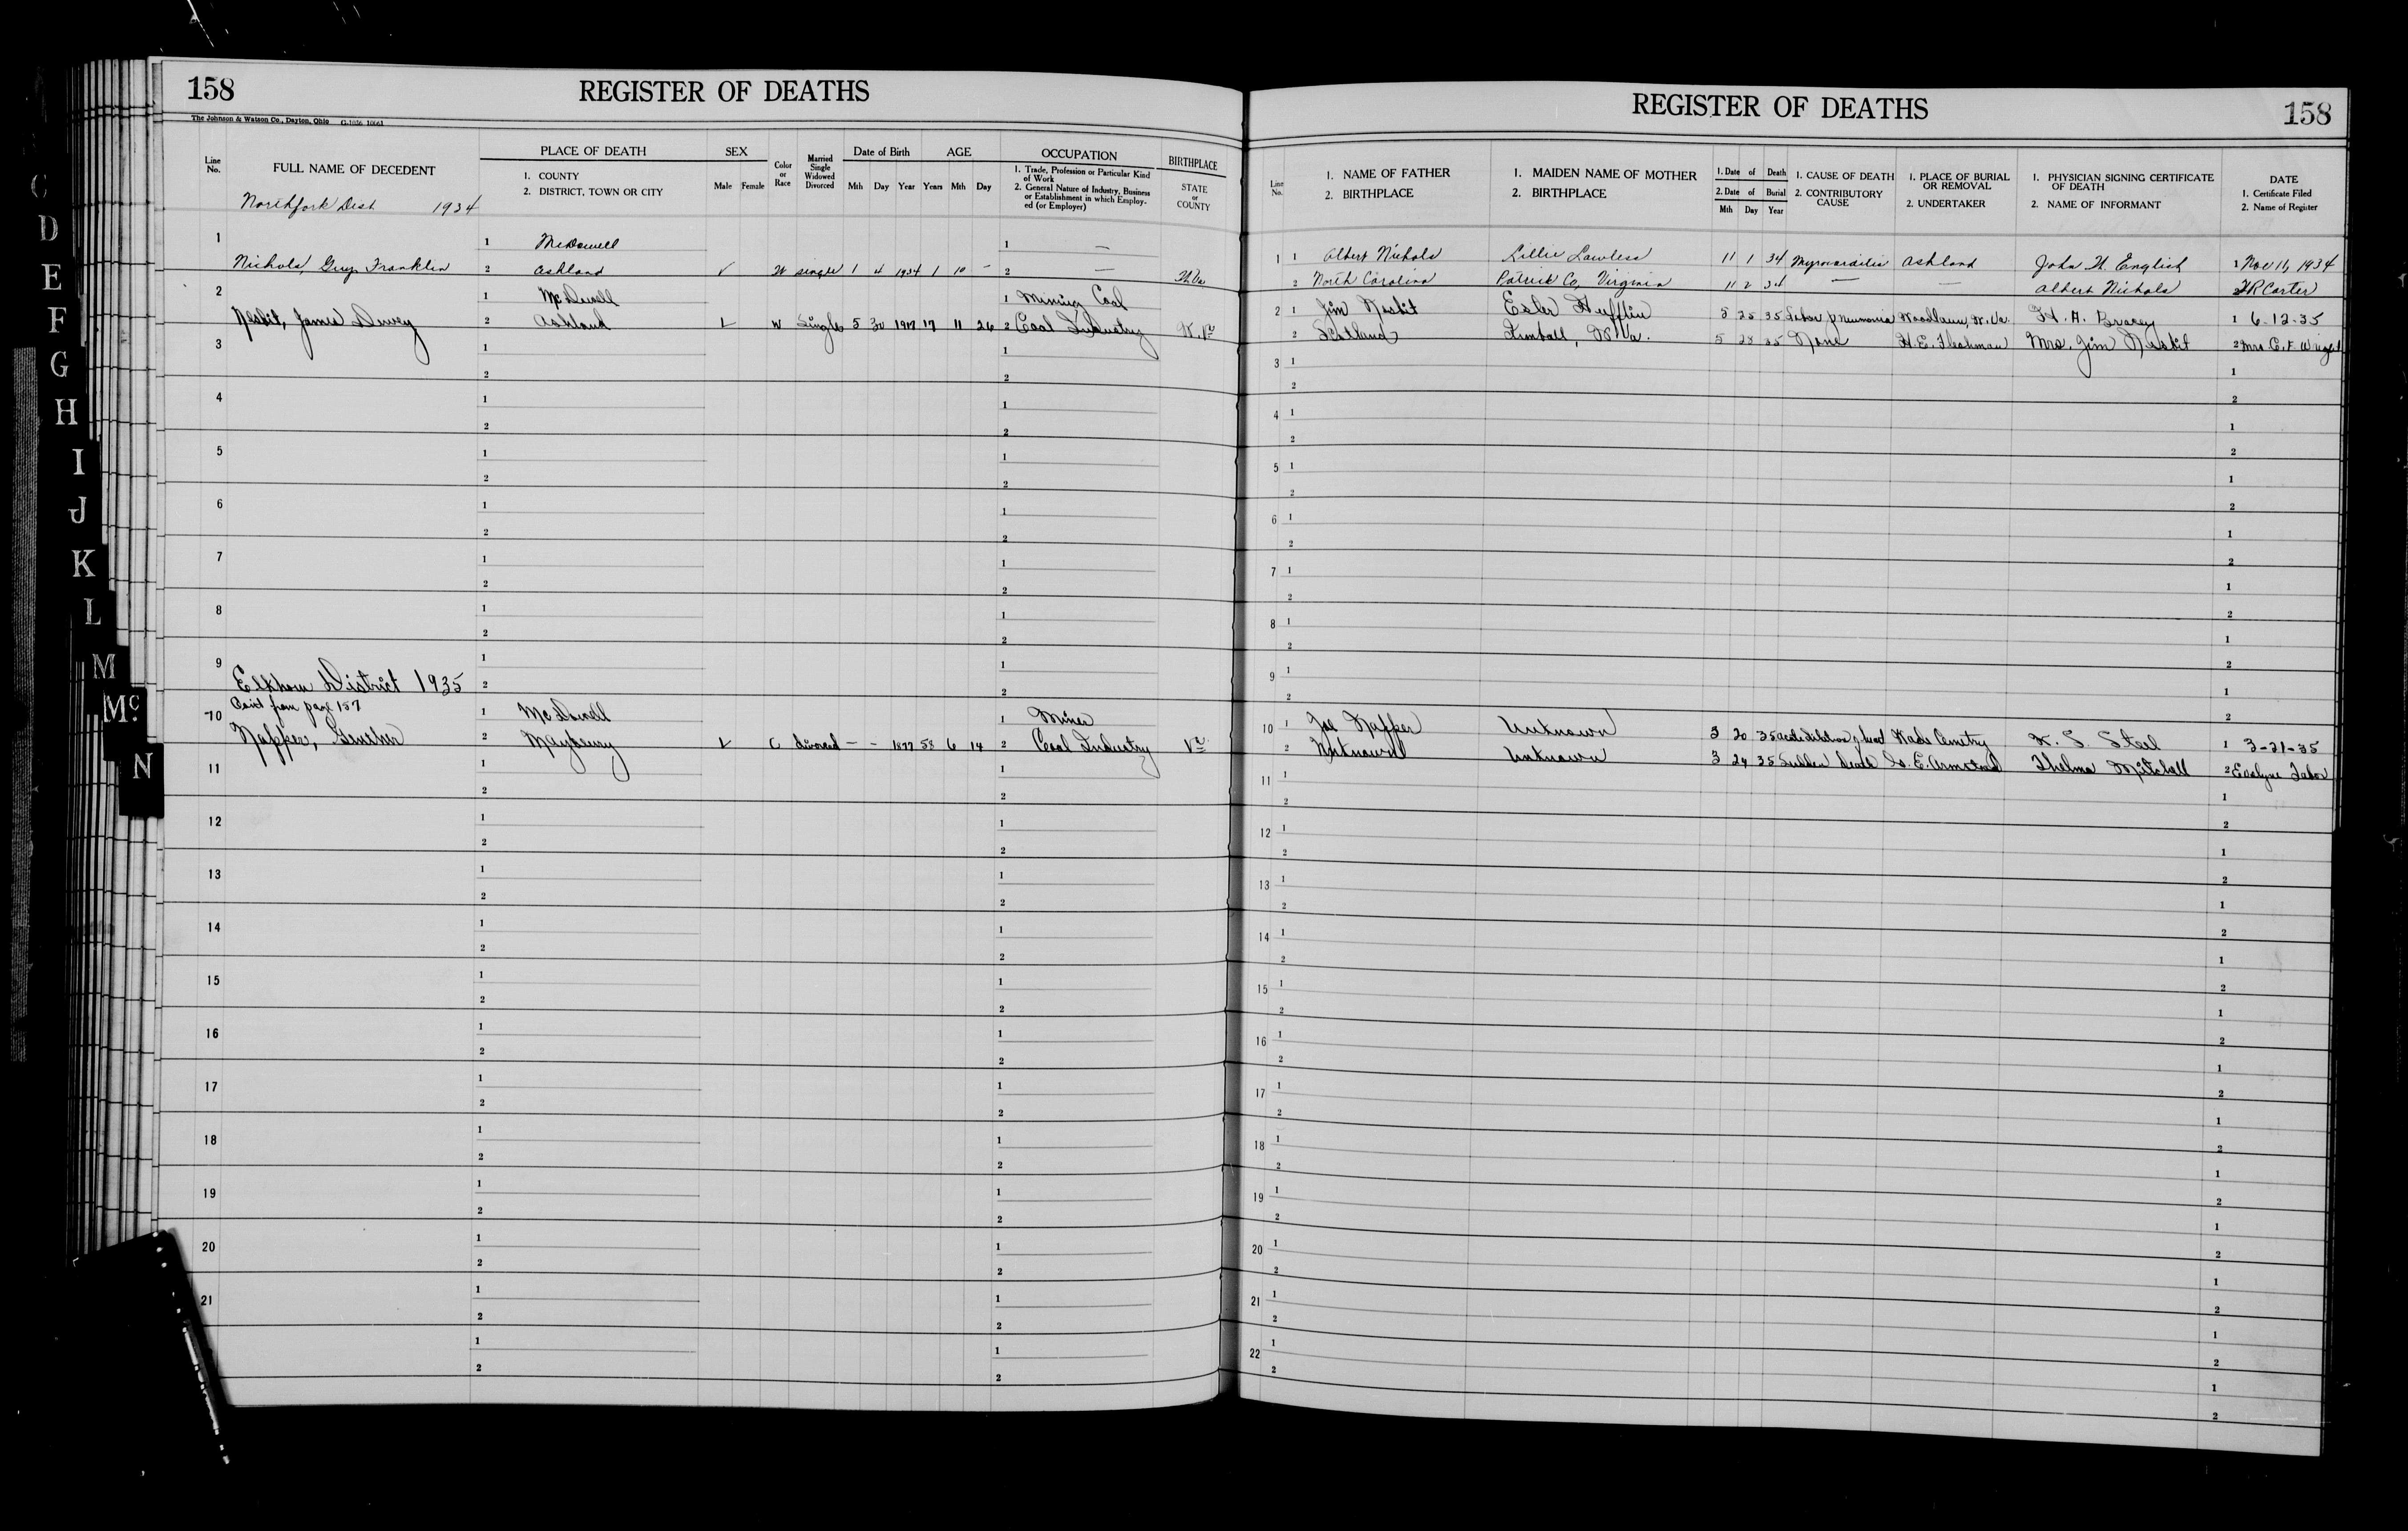 158
REGISTER OF DEATHS
The Johnson & Watson Co., Dayton, Ohio
Line No.
FULL NAME OF DECEDENT
PLACE OF DEATH
1. COUNTY
2. DISTRICT, TOWN OR CITY
SEX
Male Female
Color or Race
Married Single Widowed Divorced
Date of Birth
Mth Day Year
AGE
Years Mth Day
OCCUPATION
1. Trade, Profession or Particular Kind of Work
2. General Nature of Industry, Business or Establishment in which Employ-ed (or Employer)
BIRTHPLACE
STATE or COUNTY
Northfork Dist 1934
1
1 McDowell 1 —
Nichols Guy Franklin 2 Ashland ✓ W single 1 4 1934 1 10 - 2 — W Va
2
1 McDowell 1 Mining Coal
Nesbit, James Dewey 2 Ashland W Single 5 30 1917 17 11 26 2 Coal Industry W. Va
3 1 1
2 2
4 1 1
2 2
5 1 1
2 2
6 1 1
2 2
7 1 1
2 2
8 1 1
2 2
9 1 1
Elkhorn District 1935 2 2
Con't from page 157
10 1 McDowell 1 Miner
Napper, 2 Maybeury C divorced - - 1877 58 6 14 2 Coal Industry Va
11 1 1
2 2
12 1 1
2 2
13 1 1
2 2
14 1 1
2 2
15 1 1
2 2
16 1 1
2 2
17 1 1
2 2
18 1 1
2 2
19 1 1
2 2
20 1 1
2 2
21 1 1
2 2
1 1
2 2
C
D
E
F
G
H
I
J
K
L
M
Mc
N
REGISTER OF DEATHS
158
Line No.
1. NAME OF FATHER
2. BIRTHPLACE
1. MAIDEN NAME OF MOTHER
2. BIRTHPLACE
1. Date of Death
2. Date of Burial
Mth Day Year
1. CAUSE OF DEATH
2. CONTRIBUTORY CAUSE
1. PLACE OF BURIAL OR REMOVAL
2. UNDERTAKER
1. PHYSICIAN SIGNING CERTIFICATE OF DEATH
2. NAME OF INFORMANT
DATE
1. Certificate Filed
2. Name of Register
1 1 Albert Nichols Lillie Lawless 11 1 34 Myocarditis Ashland John H. English 1 Nov 11, 1934
2 North Carolina Patrick Co, Virginia 11 2 34 — — Albert Nichols Carter
2 1 Jim Nesbit Hufflin 5 25 35 Lobar pneumonia Woodlawn, W. Va. H. A. Bracey 1 6-12-35
2 Scotland Kimball, W Va. 5 28 35 None H. E. Fleshman Mrs. Jim Nesbit 2 Mrs C. F. Wright
3 1 1
2 2
4 1 1
2 2
5 1 1
2 2
6 1 1
2 2
7 1 1
2 2
8 1 1
2 2
9 1 1
2 2
10 1 Joe Napper Unknown 3 20 35 Acute dilation of heart Wade Cemetry Steel 1 3-21-35
2 Unknown Unknown 3 24 35 Sudden death E. Armstead Thelma Mitchell 2 Evelyne Tabor
11 1 1
2 2
12 1 1
2 2
13 1 1
2 2
14 1 1
2 2
15 1 1
2 2
16 1 1
2 2
17 1 1
2 2
18 1 1
2 2
19 1 1
2 2
20 1 1
2 2
21 1 1
2 2
22 1 1
2 2